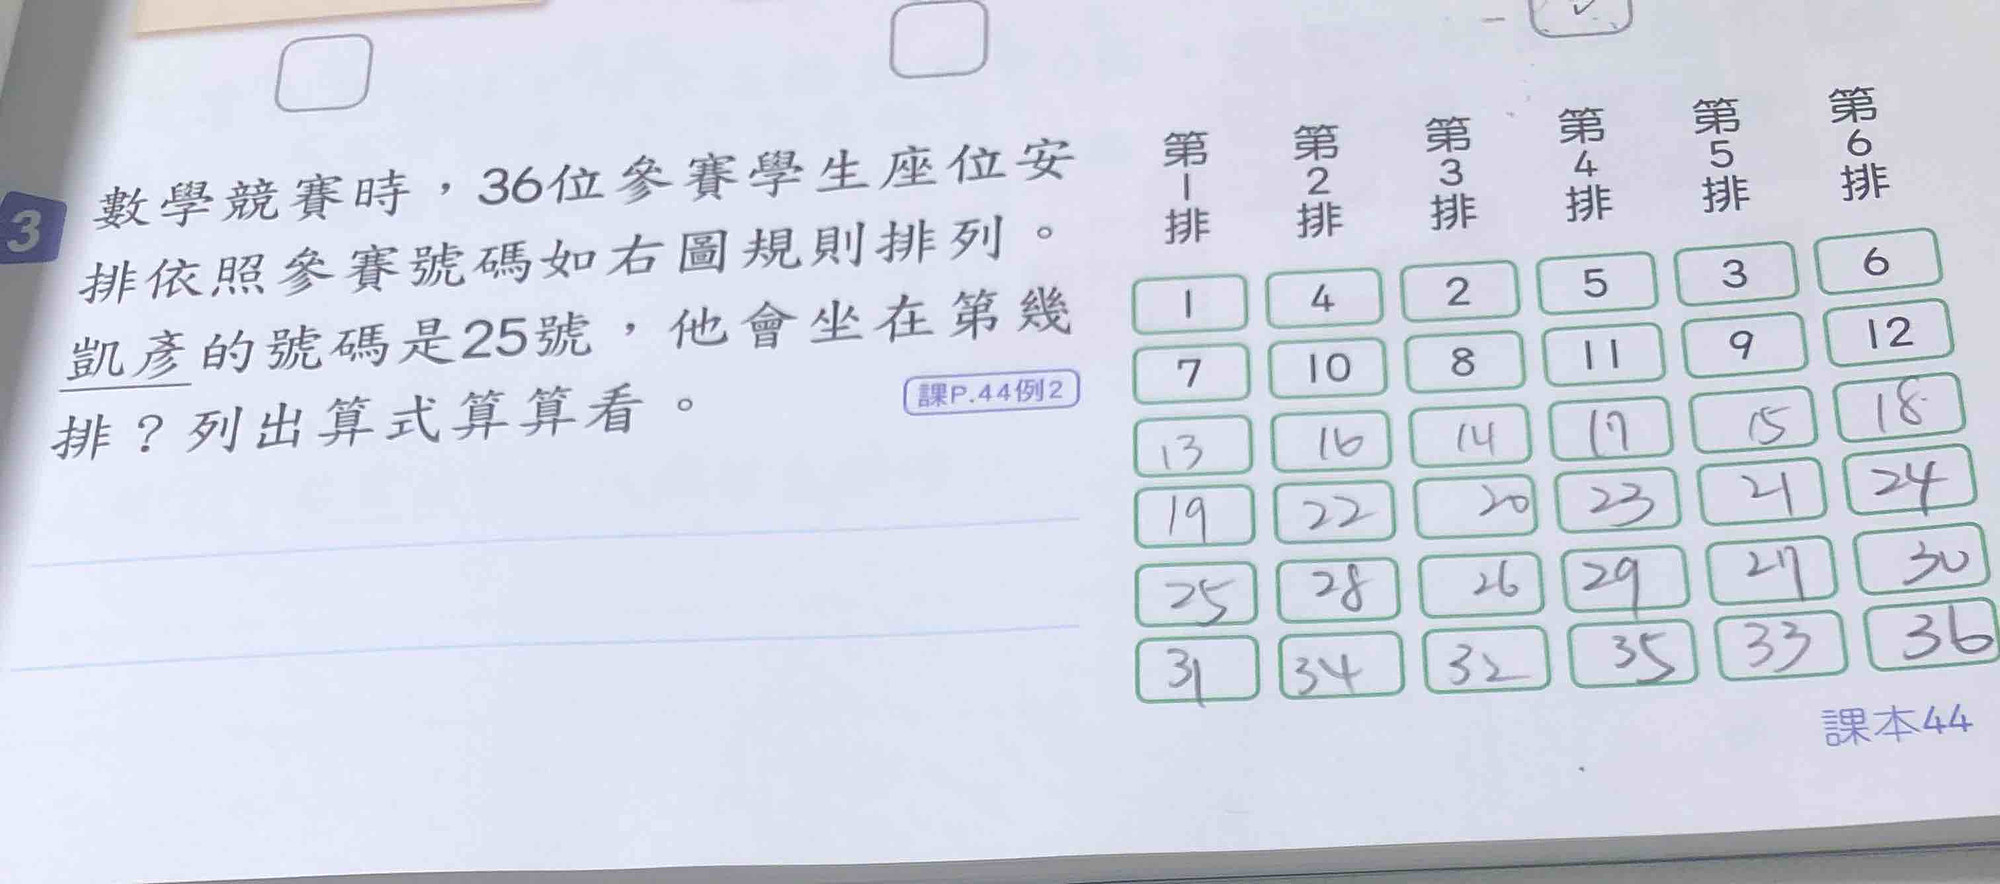 3
數學競賽時，36位參賽學生座位安
排依照參賽號碼如右圖規則排列。
凱彥的號碼是25號，他會坐在第幾
排？列出算式算算看。
課P.44例2
第1排 第2排 第3排 第4排 第5排 第6排
1 4 2 5 3 6
7 10 8 11 9 12
13 16 14 17 15 18
19 22 20 23 21 24
25 28 26 29 27 30
31 34 32 35 33 36
課本44